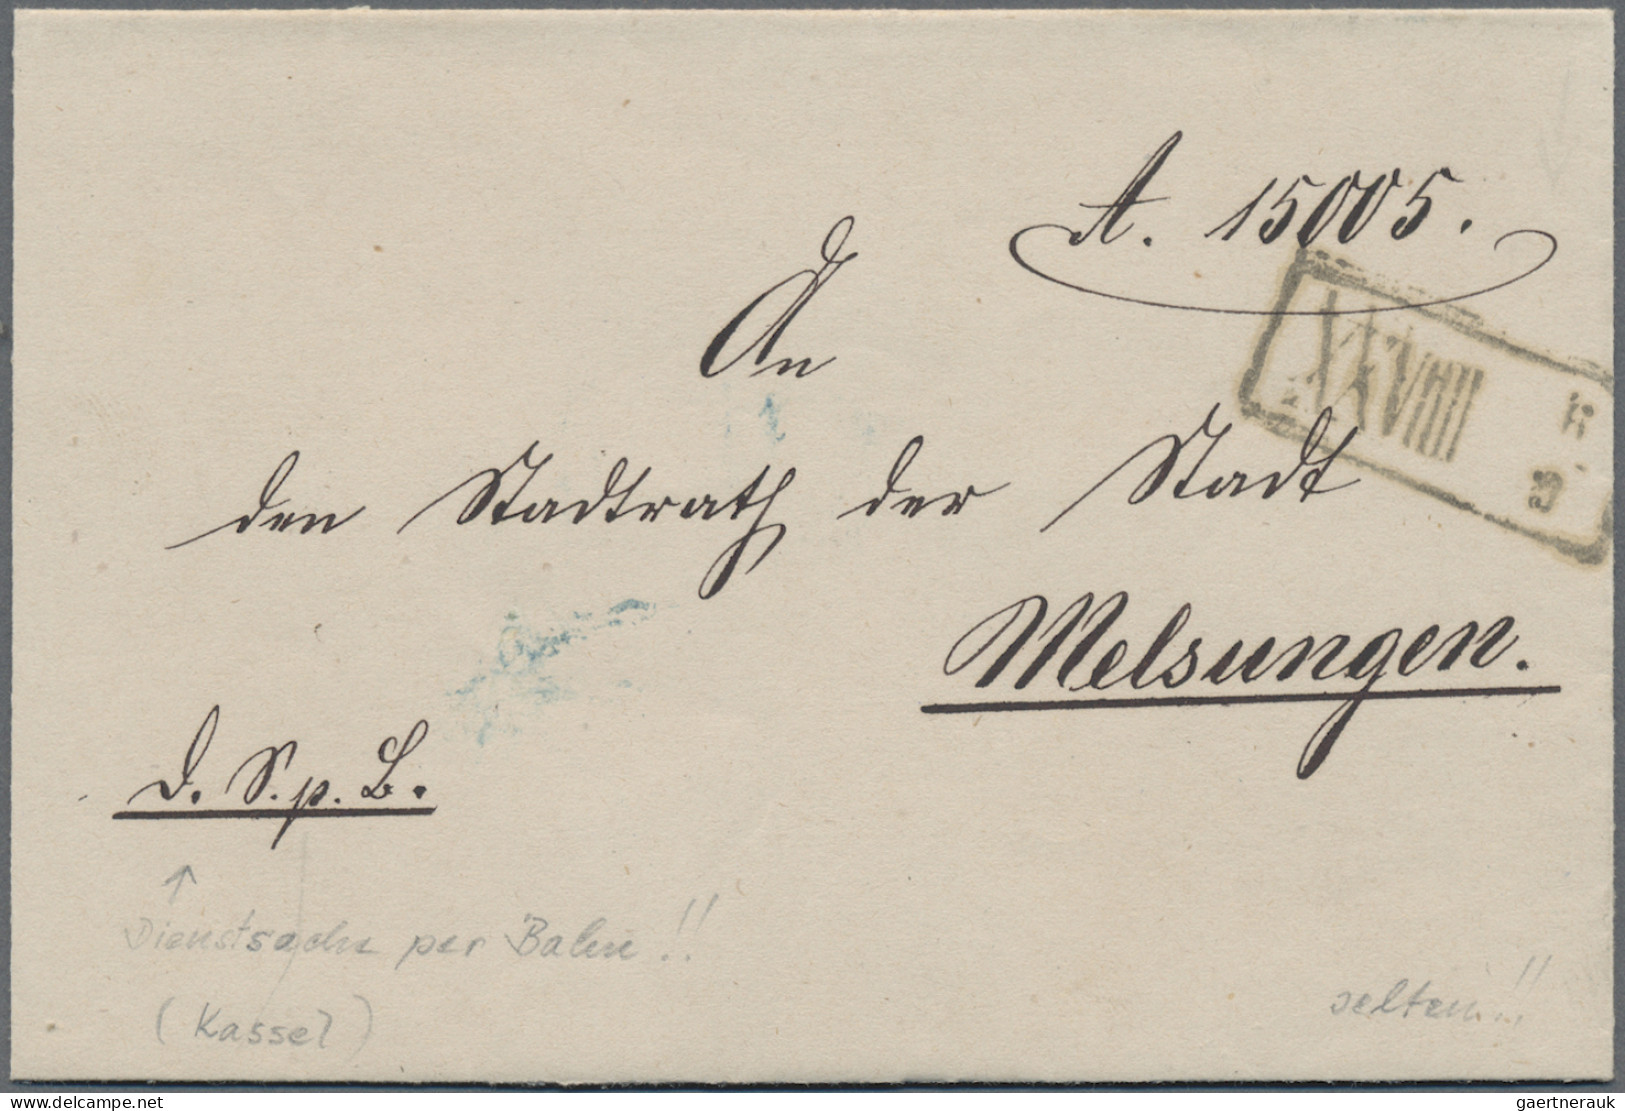 A. 15005.
An
XXVIIII
den Stadtrath der Stadt
Melsungen.
D. S. p. B.
Dienstsache per Bahn!!
(Kassel)
selten!!
www.delcampe.net
gaertnerauk